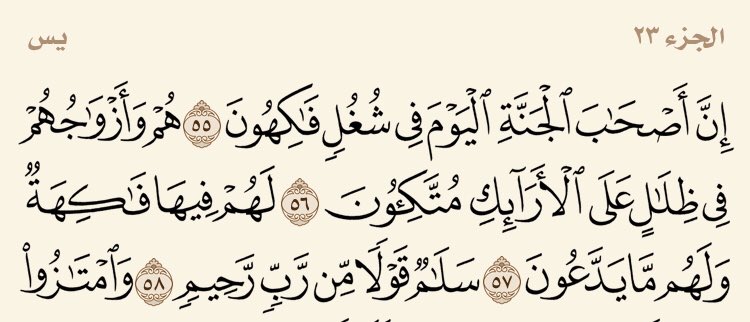 الجزء ٢٣ يس
إِنَّ أَصْحَٰبَ ٱلْجَنَّةِ ٱلْيَوْمَ فِى شُغُلٍ فَٰكِهُونَ ٥٥ هُمْ وَأَزْوَٰجُهُمْ
فِى ظِلَٰلٍ عَلَى ٱلْأَرَآئِكِ مُتَّكِـُٔونَ ٥٦ لَهُمْ فِيهَا فَٰكِهَةٌ
وَلَهُم مَّا يَدَّعُونَ ٥٧ سَلَٰمٌ قَوْلًا مِّن رَّبٍّ رَّحِيمٍ ٥٨ وَٱمْتَٰزُوا۟